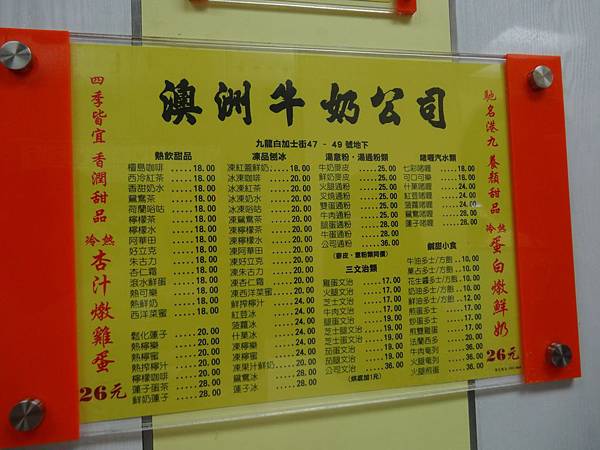 澳洲牛奶公司
九龍白加士街47 - 49 號地下
四季皆宜 香潤甜品
冷 熱
杏汁燉雞蛋
26元
熱飲甜品
檀島咖啡 ..... 18.00
西冷紅茶 ..... 18.00
香甜奶水 ..... 18.00
鴛鴦茶 ..... 18.00
荷蘭唂咕 ..... 18.00
檸檬茶 ..... 18.00
檸檬水 ..... 18.00
阿華田 ..... 18.00
好立克 ..... 18.00
朱古力 ..... 18.00
杏仁霜 ..... 18.00
滾水鮮蛋 ..... 18.00
熱可樂 ..... 18.00
熱鮮奶 ..... 18.00
西洋菜蜜 ..... 18.00
鬆化蓮子 ..... 20.00
熱檸樂 ..... 20.00
熱檸蜜 ..... 20.00
熱搾檸汁 ..... 24.00
檸檬咖啡 ..... 20.00
蓮子蛋茶 ..... 28.00
鮮奶蓮子 ..... 28.00
凍品刨冰
凍紅蓋鮮奶 ..... 18.00
冰凍咖啡 ..... 20.00
冰凍紅茶 ..... 20.00
冰凍奶水 ..... 20.00
冰凍唂咕 ..... 20.00
凍鴛鴦茶 ..... 20.00
凍檸檬茶 ..... 20.00
凍檸檬水 ..... 20.00
凍阿華田 ..... 20.00
凍好立克 ..... 20.00
凍朱古力 ..... 20.00
凍杏仁霜 ..... 20.00
凍西洋菜蜜 ..... 20.00
鮮搾檸汁 ..... 24.00
紅豆冰 ..... 24.00
菠蘿冰 ..... 24.00
什菓冰 ..... 24.00
凍檸樂 ..... 24.00
凍檸蜜 ..... 24.00
凍果汁鮮奶 ..... 24.00
鴛鴦冰 ..... 28.00
蓮子冰 ..... 28.00
湯意粉·湯通粉類
牛奶麥皮 ..... 25.00
鮮奶麥皮 ..... 25.00
火腿通粉 ..... 25.00
叉燒通粉 ..... 25.00
雙蛋通粉 ..... 25.00
牛肉通粉 ..... 25.00
腿蛋通粉 ..... 28.00
牛蛋通粉 ..... 28.00
公司通粉 ..... 36.00
(麥皮、意粉類同價)
三文治類
雞蛋文治 ..... 17.00
火腿文治 ..... 17.00
芝士文治 ..... 17.00
牛肉文治 ..... 17.00
腿蛋文治 ..... 20.00
芝士腿文治 ..... 20.00
芝士蛋文治 ..... 20.00
茄蛋文治 ..... 20.00
茄腿文治 ..... 20.00
公司文治 ..... 36.00
(烘底加1元)
啫喱汽水類
七彩啫喱 ..... 18.00
可口可樂 ..... 18.00
什菓啫喱 ..... 24.00
紅豆啫喱 ..... 24.00
菠蘿啫喱 ..... 24.00
鴛鴦啫喱 ..... 28.00
蓮子啫喱 ..... 28.00
鹹甜小食
牛油多士/方飽 .. 10.00
菓占多士/方飽 .. 10.00
花生醬多士/方飽 .. 10.00
奶油多士/方飽 .. 12.00
鮮油多士/方飽 .. 12.00
煎蛋多士 ..... 17.00
炒蛋多士 ..... 17.00
煎雙雞蛋 ..... 17.00
法蘭西多 ..... 20.00
牛肉奄列 ..... 36.00
火腿奄列 ..... 36.00
火腿煎蛋 ..... 36.00
馳名港九 養顏甜品
冷 熱
蛋白燉鮮奶
26元